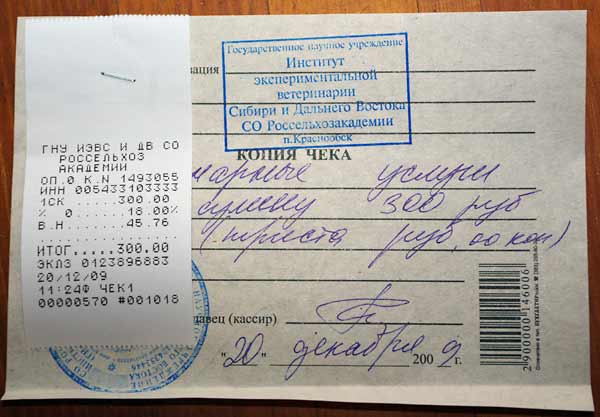 ГНУ ИЭВС И ДВ СО
РОССЕЛЬХОЗ
АКАДЕМИИ
ОП.0 К.N 1493055
ИНН 005433103333
1СК ......300.00
% 0 .......18.00%
В.Н.......45.76
ИТОГ.....300.00
ЭКЛЗ 0123896883
20/12/09
11:24Ф ЧЕК1
00000570 #001018
зация
Государственное научное учреждение
Институт
экспериментальной
ветеринарии
Сибири и Дальнего Востока
СО Россельхозакадемии
п.Краснообск
КОПИЯ ЧЕКА
услуги
сумму 300 руб
(триста руб, 00 коп)
давец (кассир)
"20" декабря 2009 г.
2900000146006
ВОСТОКА